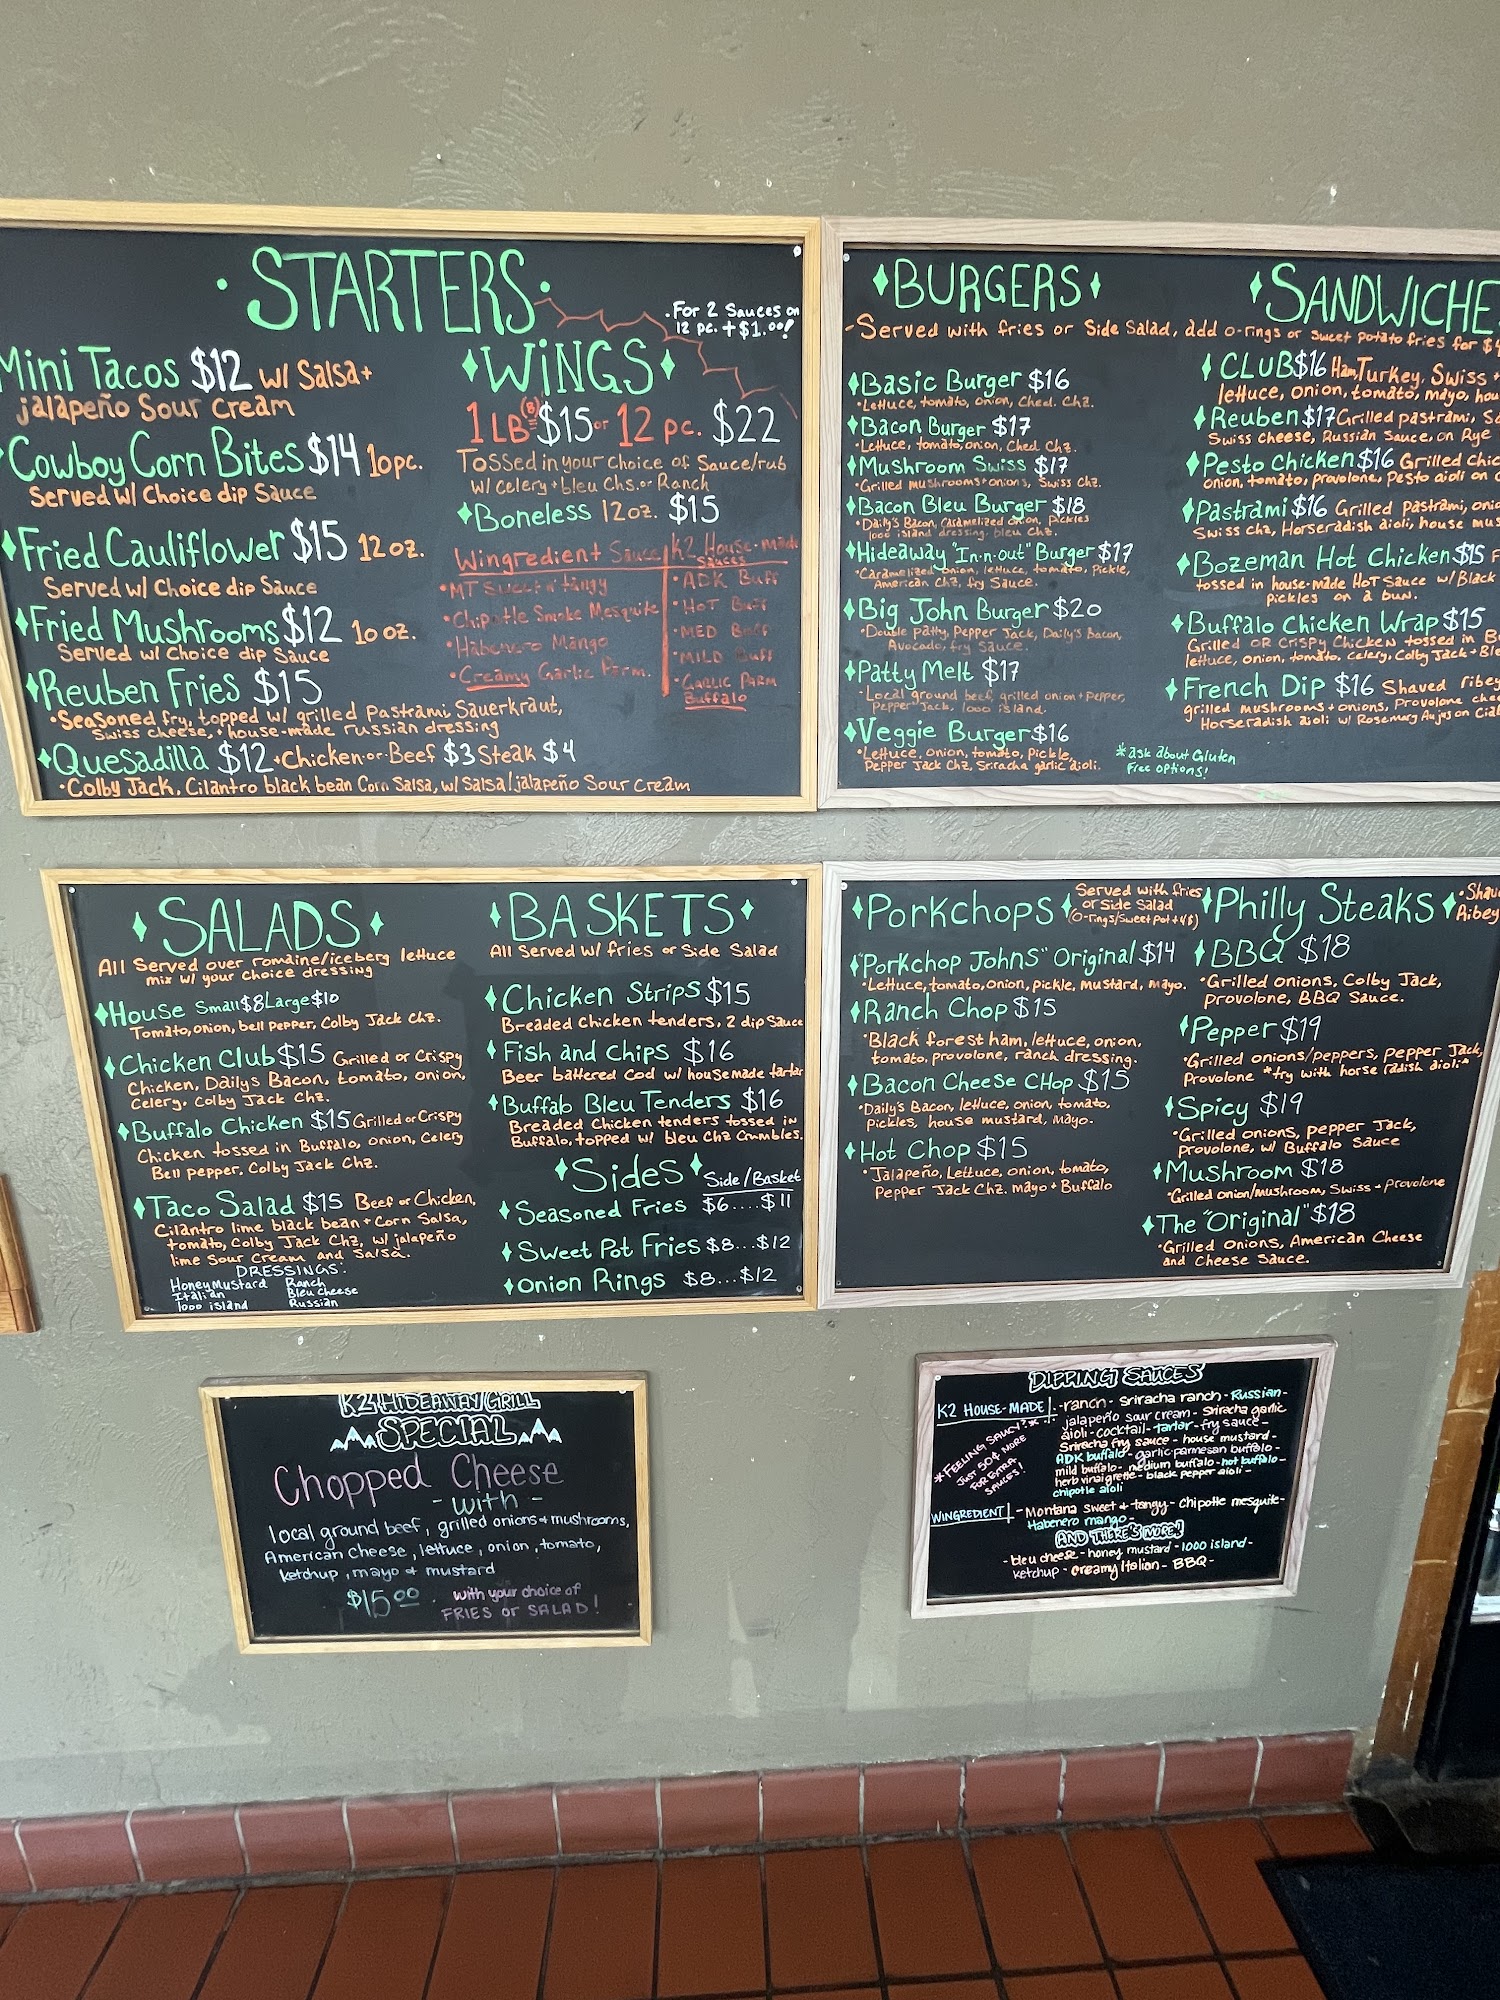 ·STARTERS·
Mini Tacos $12 w/ Salsa+
jalapeño Sour Cream
Cowboy Corn Bites $14 10pc.
Served w/ Choice dip Sauce
Fried Cauliflower $15 12 oz.
Served w/ Choice dip Sauce
Fried Mushrooms $12 10 oz.
Served w/ Choice dip Sauce
Reuben Fries $15
•Seasoned fry, topped w/ grilled Pastrami, Sauerkraut,
Swiss cheese, + house-made russian dressing
Quesadilla $12 •Chicken or Beef $3 Steak $4
•Colby Jack, Cilantro black bean Corn Salsa, w/ Salsa/jalapeño Sour Cream
•For 2 Sauces on
12 pc. +$1.00!
WiNGS
1 LB (8) $15 or 12 pc. $22
Tossed in your choice of Sauce/rub
w/ celery + bleu Chs. or Ranch
Boneless 12oz. $15
Wingredient Sauce
•MT Sweet n' tangy
•Chipotle Smoke Mesquite
•Habenero Mango
•Creamy Garlic Parm.
K2 House-made
Sauces
•ADK Buff
•HOT Buff
•MED Buff
•MILD Buff
•GARLIC PARM
Buffalo
BURGERS
SANDWICHE
-Served with fries or Side Salad, add o-rings or sweet potato fries for $4
Basic Burger $16
•Lettuce, tomato, onion, Ched. Chz.
Bacon Burger $17
•Lettuce, tomato, onion, Ched Chz.
Mushroom Swiss $17
•Grilled mushrooms+onions, Swiss Chz.
Bacon Bleu Burger $18
•Daily's Bacon, Caramelized onion, Pickles
1000 island dressing, bleu Chz.
Hideaway "In-n-out" Burger $17
•Caramelized onion, lettuce, tomato, Pickle,
American Chz, fry Sauce.
Big John Burger $20
•Double Patty, Pepper Jack, Daily's Bacon,
Avocado, fry Sauce.
Patty Melt $17
•Local ground beef, grilled onion+pepper,
Pepper Jack, 1000 island.
Veggie Burger $16
•Lettuce, onion, tomato, Pickle,
Pepper Jack Chz, Sriracha garlic aioli.
*ask about Gluten
Free options!
CLUB $16 Ham, Turkey, Swiss +
lettuce, onion, tomato, mayo, hou
Reuben $17 Grilled pastrami, Sa
Swiss cheese, Russian Sauce, on Rye
Pesto Chicken $16 Grilled Chic
onion, tomato, provolone, Pesto aioli on c
Pastrami $16 Grilled Pastrami, onio
Swiss chz, Horseradish aioli, house mus
Bozeman Hot Chicken $15 F
tossed in house-made HOT Sauce w/ Black
pickles on a bun.
Buffalo Chicken Wrap $15
Grilled OR CRISPY Chicken tossed in B
lettuce, onion, tomato, celery, Colby Jack + Ble
French Dip $16 Shaved ribey
grilled mushrooms + onions, Provolone che
Horseradish aioli w/ Rosemary Aujus on Ciab
SALADS
All Served over romaine/iceberg lettuce
mix w/ your choice dressing
House Small $8 Large $10
Tomato, onion, bell pepper, Colby Jack Chz.
Chicken Club $15 Grilled or Crispy
Chicken, Dailys Bacon, tomato, onion,
Celery, Colby Jack Chz.
Buffalo Chicken $15 Grilled or Crispy
Chicken tossed in Buffalo, onion, Celery
Bell pepper, Colby Jack Chz.
Taco Salad $15 Beef or Chicken,
Cilantro lime black bean + Corn Salsa,
tomato, Colby Jack Chz, w/ jalapeño
lime Sour Cream and Salsa.
DRESSINGS:
Honey Mustard Ranch
Italian Bleu Cheese
1000 island Russian
BASKETS
All Served w/ fries or Side Salad
Chicken Strips $15
Breaded Chicken tenders, 2 dip Sauce
Fish and Chips $16
Beer battered Cod w/ housemade tartar
Buffalo Bleu Tenders $16
Breaded Chicken tenders tossed in
Buffalo, topped w/ bleu Chz Crumbles.
Sides Side/Basket
Seasoned Fries $6....$11
Sweet Pot Fries $8...$12
Onion Rings $8...$12
PorkChops
Served with fries
or Side Salad
(O-rings/Sweet pot + 4$)
"Porkchop Johns" Original $14
•Lettuce, tomato, onion, pickle, mustard, mayo.
Ranch Chop $15
•Black forest ham, lettuce, onion,
tomato, provolone, ranch dressing.
Bacon Cheese CHop $15
•Daily's Bacon, lettuce, onion, tomato,
Pickles, house mustard, mayo.
Hot Chop $15
•Jalapeño, Lettuce, onion, tomato,
Pepper Jack Chz. mayo + Buffalo
Philly Steaks
•Shav
Ribey
BBQ $18
•Grilled onions, Colby Jack,
provolone, BBQ Sauce.
Pepper $19
•Grilled onions/peppers, pepper Jack,
Provolone *try with horse radish aioli*
Spicy $19
•Grilled onions, pepper Jack,
provolone, w/ Buffalo Sauce
Mushroom $18
•Grilled onion/mushroom, Swiss + Provolone
The "Original" $18
•Grilled Onions, American Cheese
and Cheese Sauce.
K2 HIDEAWAY GRILL
SPECIAL
Chopped Cheese
- with -
local ground beef, grilled onions + mushrooms,
American cheese, lettuce, onion, tomato,
ketchup, mayo + mustard
$15.00 with your choice of
FRIES or SALAD!
DIPPING SAUCES
K2 HOUSE-MADE -ranch - sriracha ranch - Russian-
jalapeño sour cream - Sriracha garlic
aioli - cocktail - tartar - fry sauce -
Sriracha fry sauce - house mustard -
ADK buffalo - garlic parmesan buffalo -
mild buffalo - medium buffalo - hot buffalo -
herb vinaigrette - black pepper aioli -
chipotle aioli
*FEELING SAUCY?*
JUST 50¢ MORE
FOR EXTRA
SAUCES!
WINGREDIENT -Montana Sweet + tangy - Chipotle mesquite-
Habenero mango-
AND THERE'S MORE!
-bleu cheese - honey mustard - 1000 island -
ketchup - creamy Italian - BBQ -